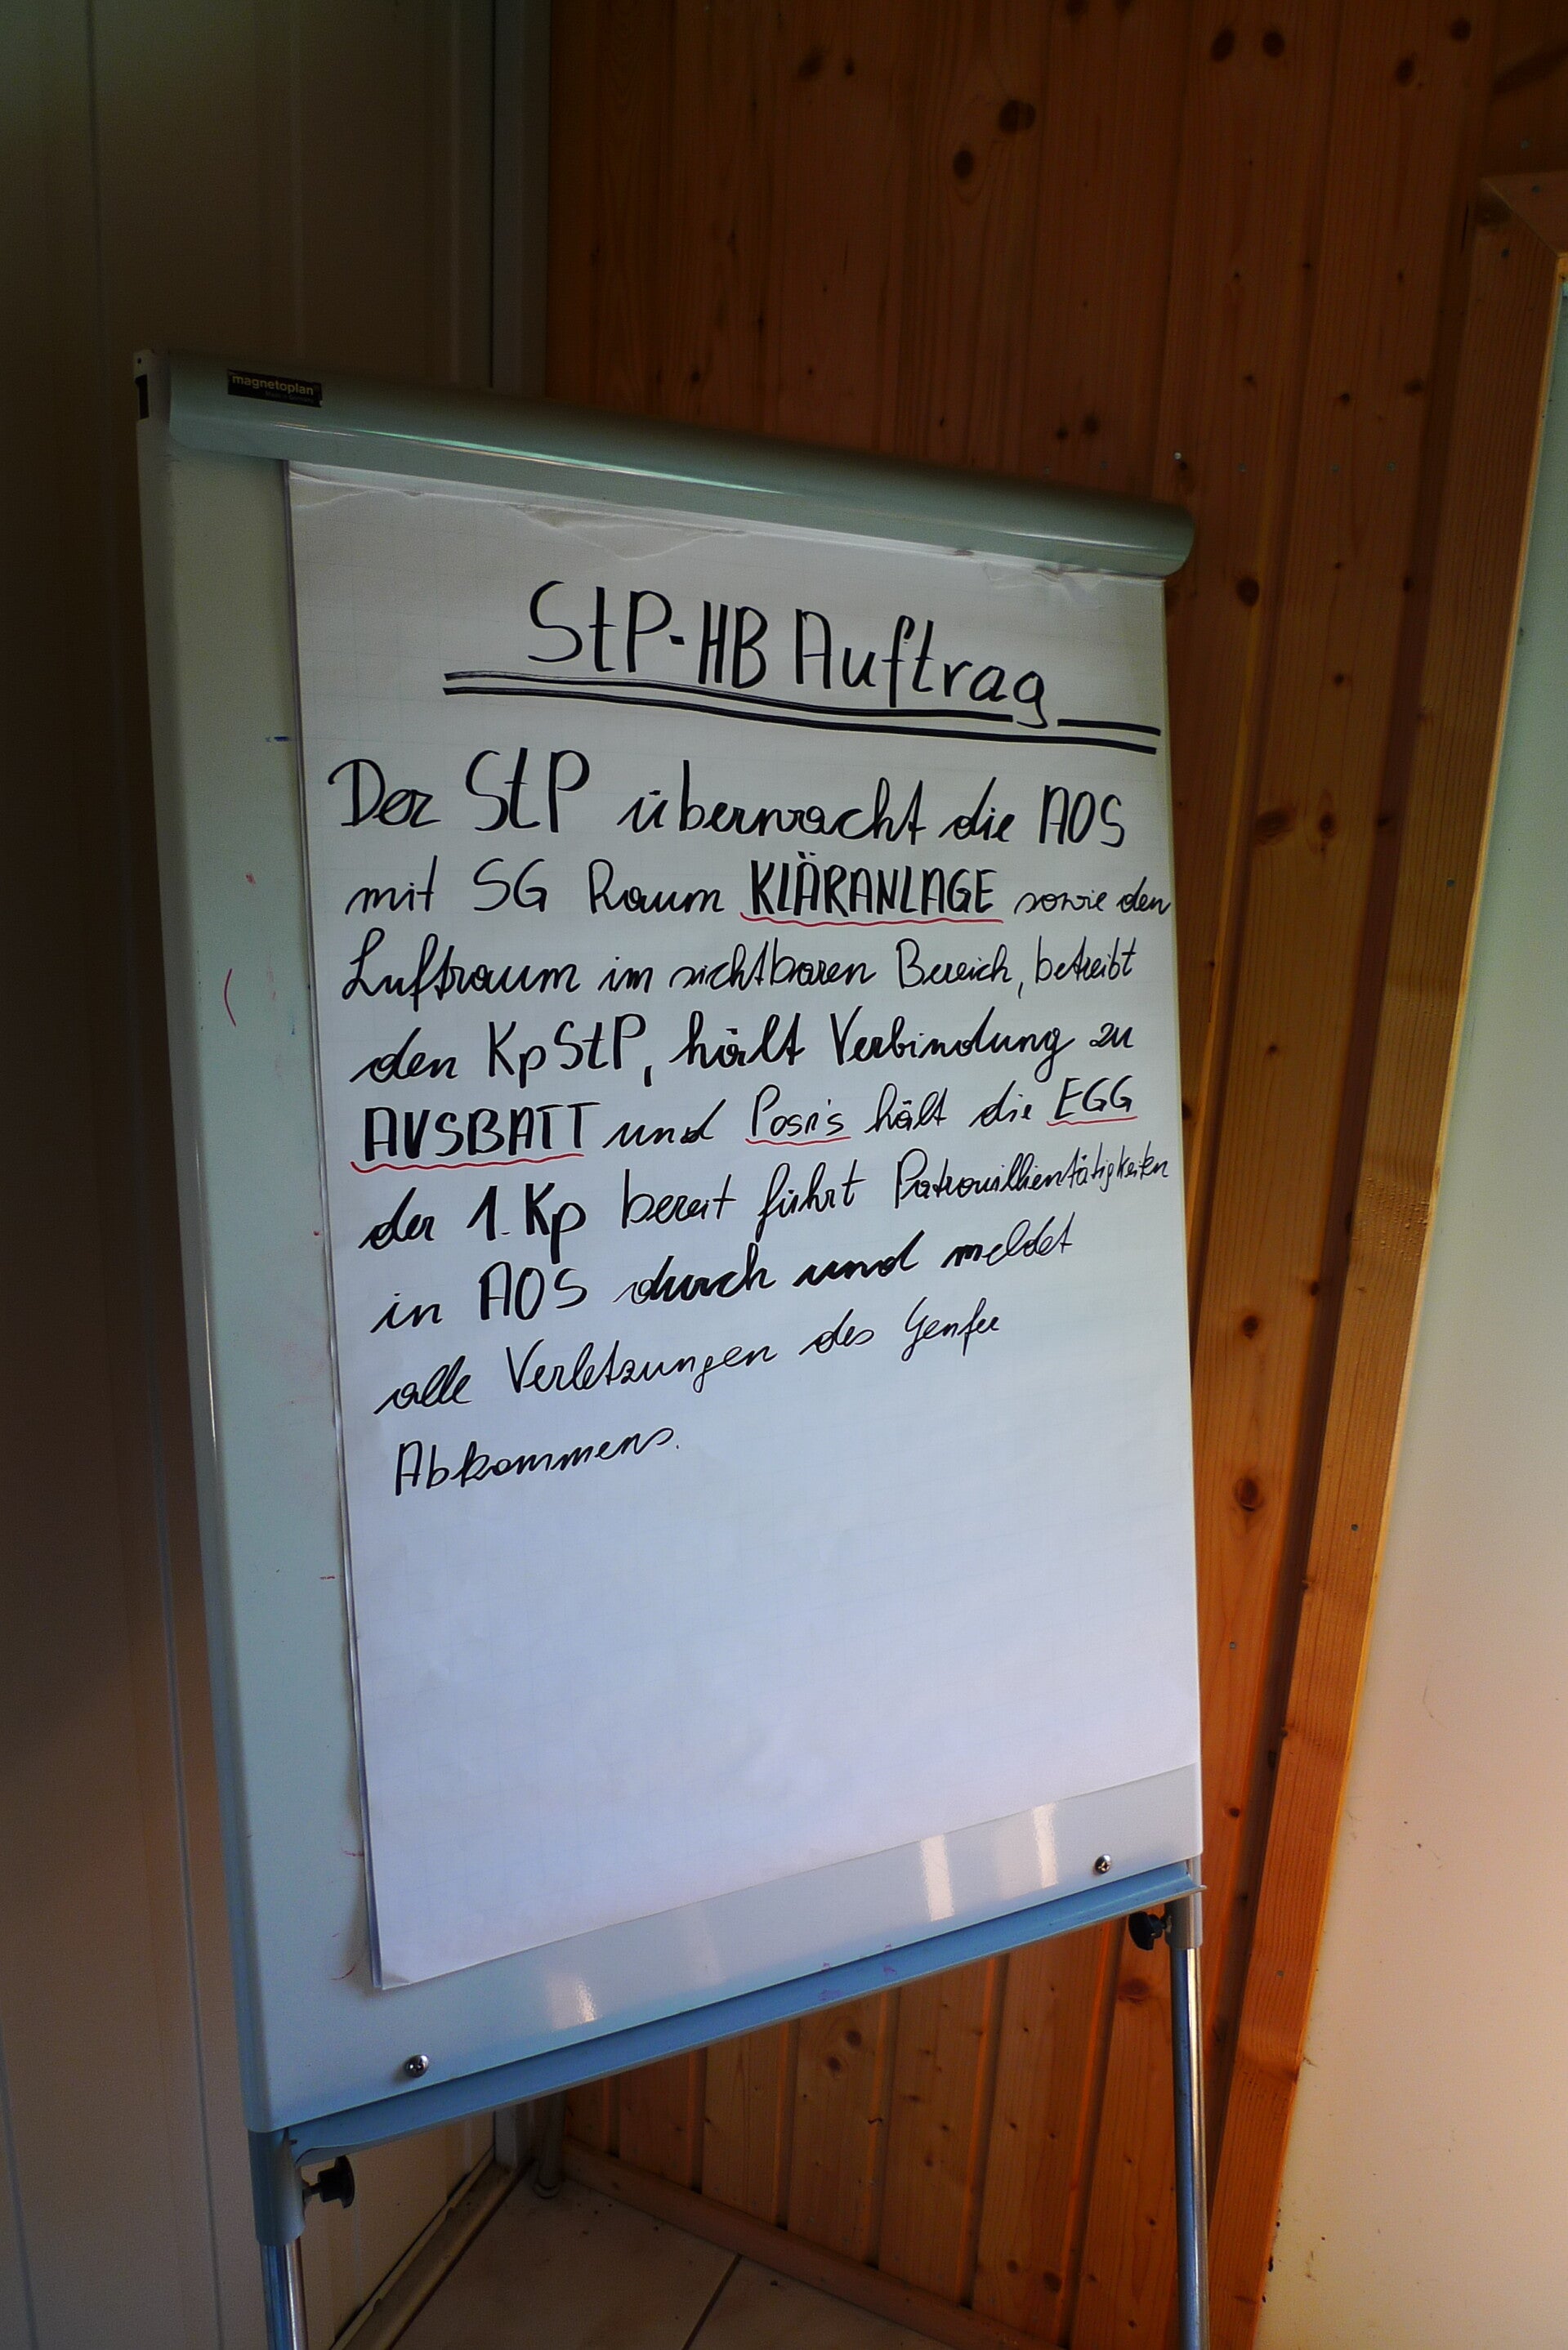 magnetoplan
StP-HB Auftrag
Der StP überwacht die AOS
mit SG Raum KLÄRANLAGE sowie den
Luftraum im sichtbaren Bereich, betreibt
den KpStP, hält Verbindung zu
AUSBATT und Posn's hält die EGG
der 1. Kp bereit führt Patrouillientätigkeiten
in AOS durch und meldet
alle Verletzungen des Genfer
Abkommens.